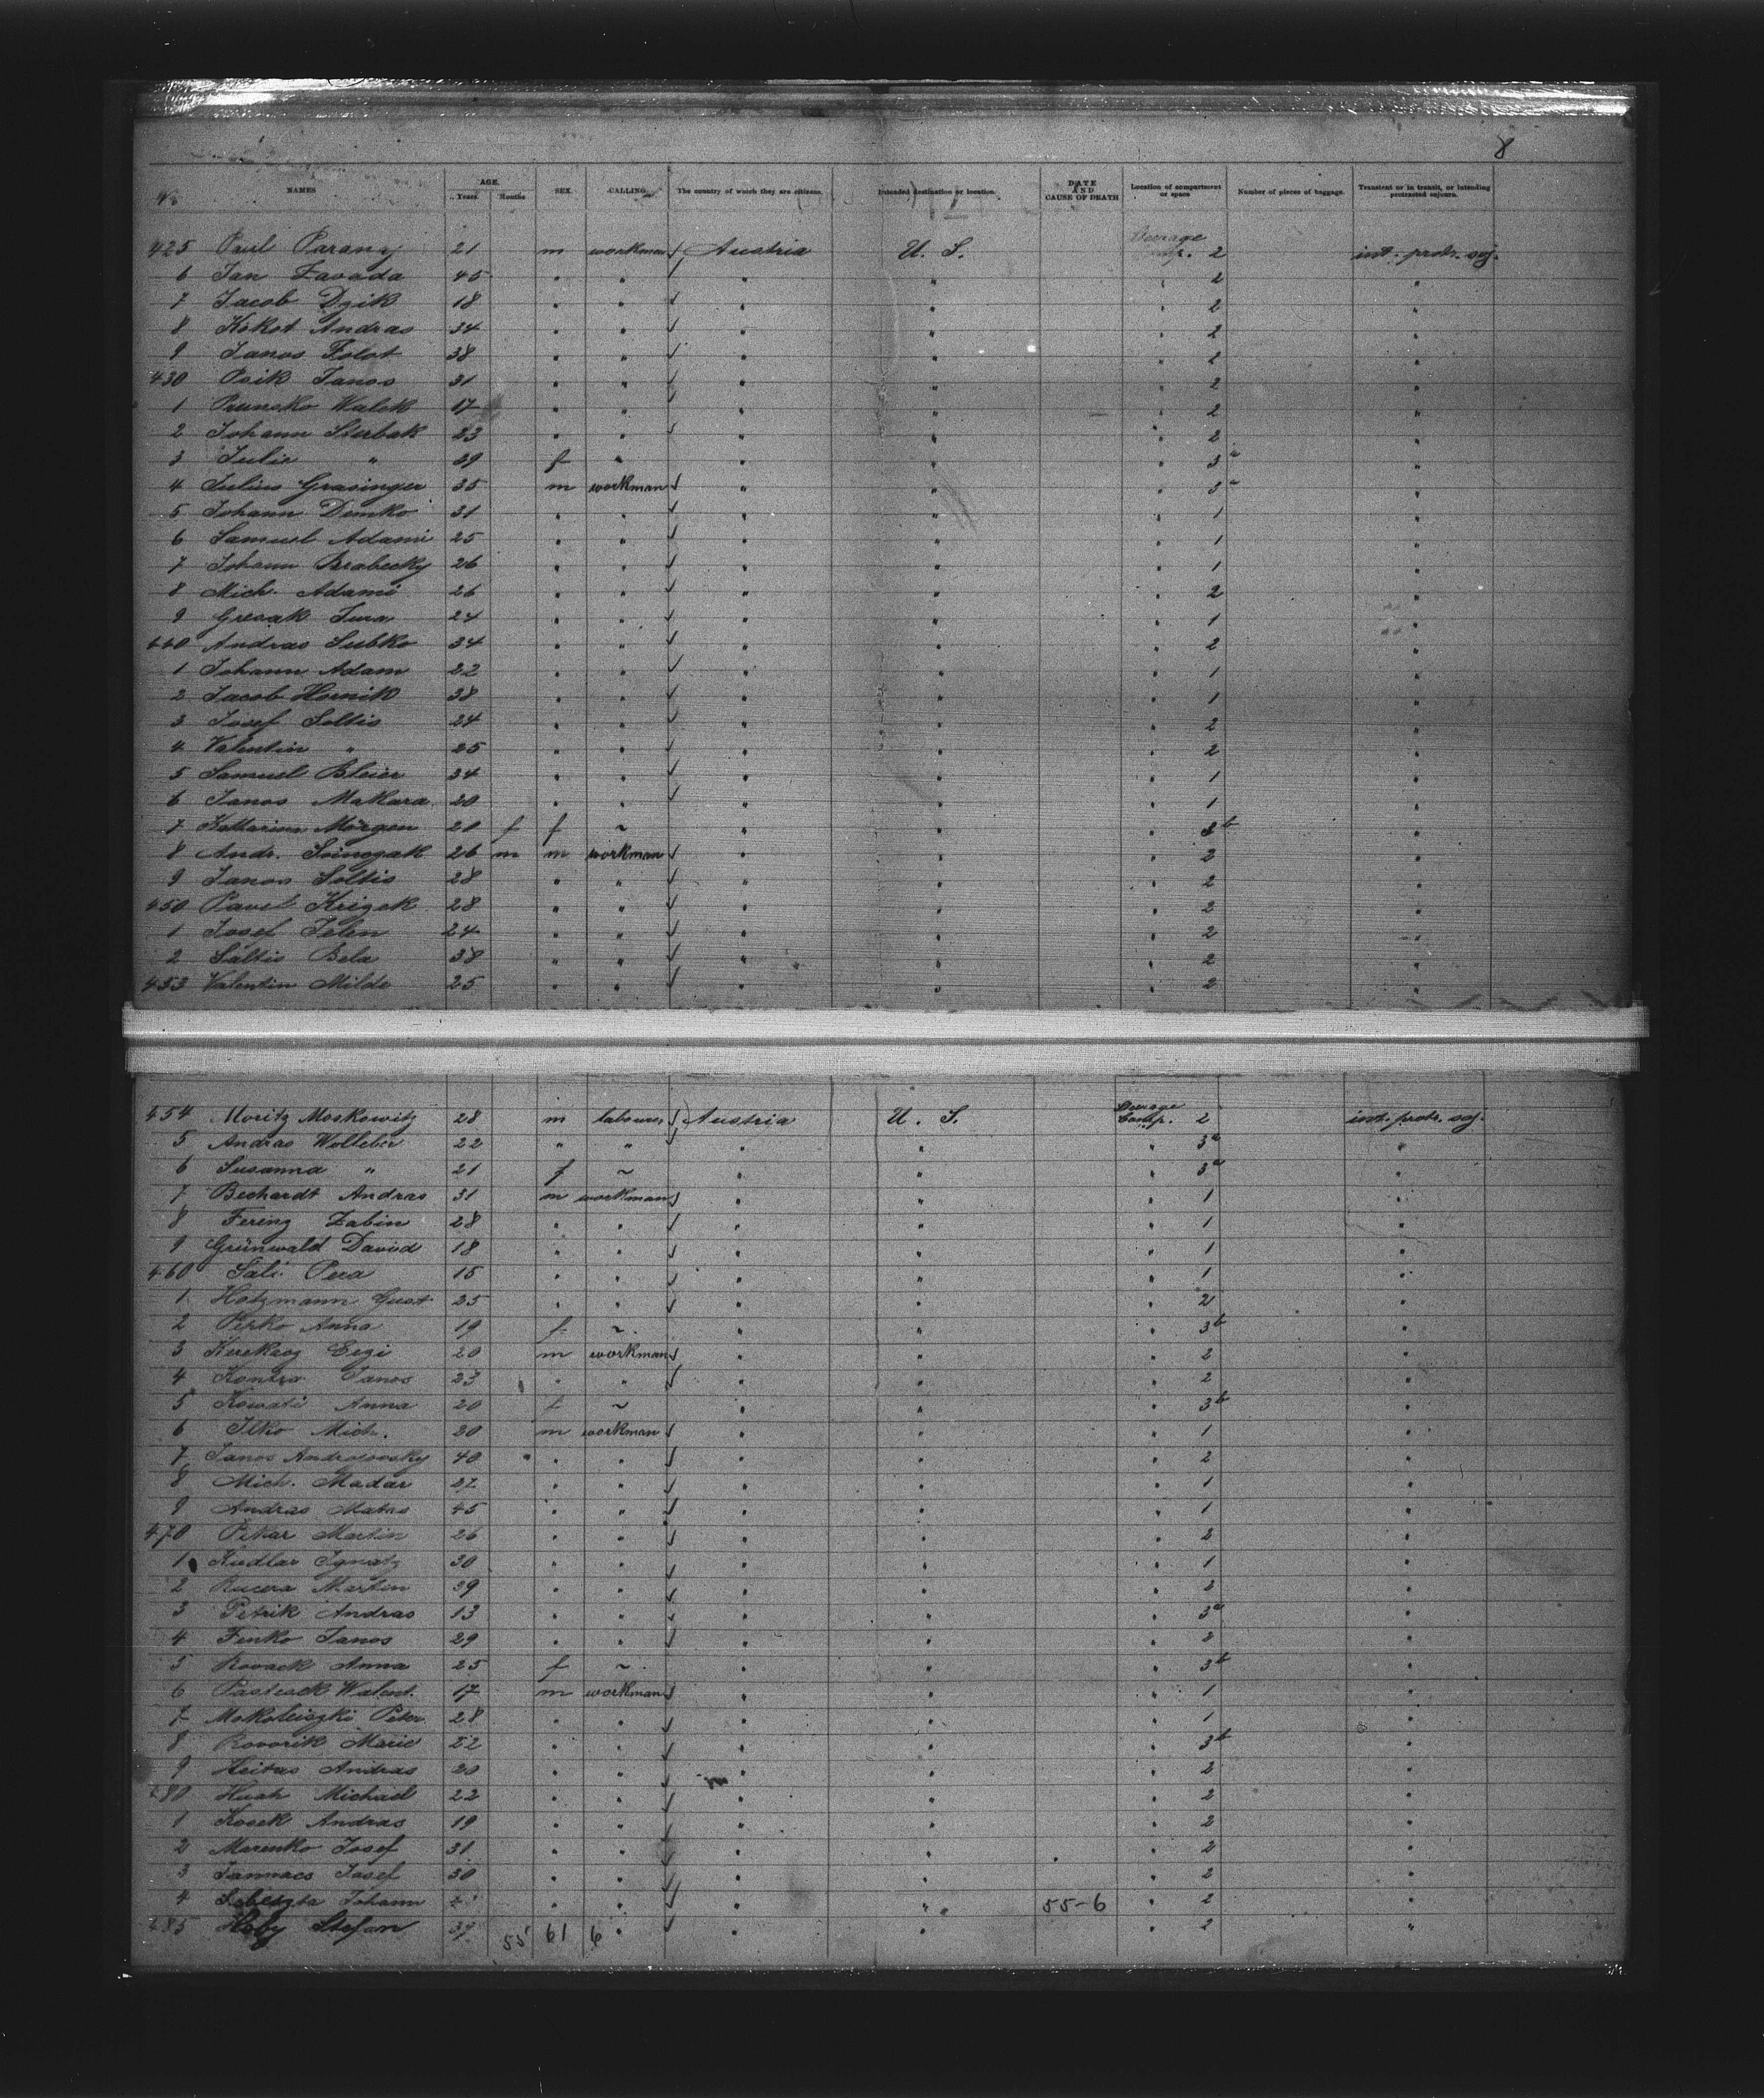 8
No NAMES AGE. Years Months SEX. CALLING. The country of which they are citizens. Intended destination or location. DATE AND CAUSE OF DEATH Location of compartment or space Number of pieces of baggage. Transient or in transit, or intending protracted sojourn.
425 Paul Parany 21 m workman Austria U. S. Steerage Comp. 2 int. protr. soj.
6 Jan Zavada 45 " " " " " 2 "
7 Jacob Dzik 18 " " " " " 2 "
8 Kokot Andras 34 " " " " " 2 "
9 Janos Folot 38 " " " " " 2 "
430 Psik Janos 31 " " " " " 2 "
1 Prunsko Walek 17 " " " " " 2 "
2 Johann Sterbak 23 " " " " " 2 "
3 Julie " 29 f " " " " 3a "
4 Julius Grasinger 35 m workman " " " 3a "
5 Johann Dimko 31 " " " " " 1 "
6 Samuel Adami 25 " " " " " 1 "
7 Johann Brabecky 26 " " " " " 1 "
8 Mich. Adami 26 " " " " " 2 "
9 Gresak Jura 24 " " " " " 1 "
440 Andras Subko 34 " " " " " 2 "
1 Johann Adam 22 " " " " " 1 "
2 Jacob Hornik 38 " " " " " 1 "
3 Josef Soltis 24 " " " " " 2 "
4 Valentin " 25 " " " " " 2 "
5 Samuel Bleier 34 " " " " " 1 "
6 Janos Makara 20 " " " " " 1 "
7 Kattarina Morgen 20 f f ~ " " " 3b "
8 Andr. 26 m m workman " " " 2 "
9 Janos Soltis 28 " " " " " 2 "
450 Pavel Krizek 28 " " " " " 2 "
1 Josef Jelen 24 " " " " " 2 "
2 Saltis Bela 38 " " " " " 2 "
453 Valentin Milde 25 " " " " " 2 "
454 Moritz Moskowitz 28 m labourer Austria U. S. Steerage Comp. 2 int. protr. soj.
5 Andras Wolleber 22 " " " " " 3a "
6 Susanna " 21 f ~ " " " 3a "
7 Bechardt Andras 31 m workman " " " 1 "
8 Ferinz Zabin 28 " " " " " 1 "
9 Grünwald David 18 " " " " " 1 "
460 Sali Pera 15 " " " " " 1 "
1 Hotzmann Gust 25 " " " " " 2 "
2 Perko Anna 19 f ~ " " " 3b "
3 20 m workman " " " 2 "
4 Kontra Janos 23 " " " " " 2 "
5 Kowati Anna 20 f ~ " " " 3b "
6 Ilko Mich. 20 m workman " " " 1 "
7 Janos Androsovsky 40 " " " " " 2 "
8 Mich. Madar 27 " " " " " 1 "
9 Andras Matas 45 " " " " " 1 "
470 Pekar Martin 26 " " " " " 2 "
1 Kudlar Ignatz 30 " " " " " 1 "
2 Rucera Martin 39 " " " " " 2 "
3 Petrik Andras 13 " " " " " 3a "
4 Finko Janos 29 " " " " " 2 "
5 Kovack Anna 25 f ~ " " " 3b "
6 Pasteack Walent. 17 m workman " " " 1 "
7 Mokoleiszki Peter 28 " " " " " 1 "
8 Rovorik Marie 22 " " " " " 3b "
9 Heitas Andras 20 " " " " " 2 "
480 Hush Michael 22 " " " " " 2 "
1 Kosek Andras 19 " " " " " 2 "
2 Marenko Josef 31 " " " " " 2 "
3 Jannacs Josef 30 " " " " " 2 "
4 Sebeszta Johann " " " " 55-6 " 2 "
485 Hoby Stefan 37 " " " " 2 "
55 61 6